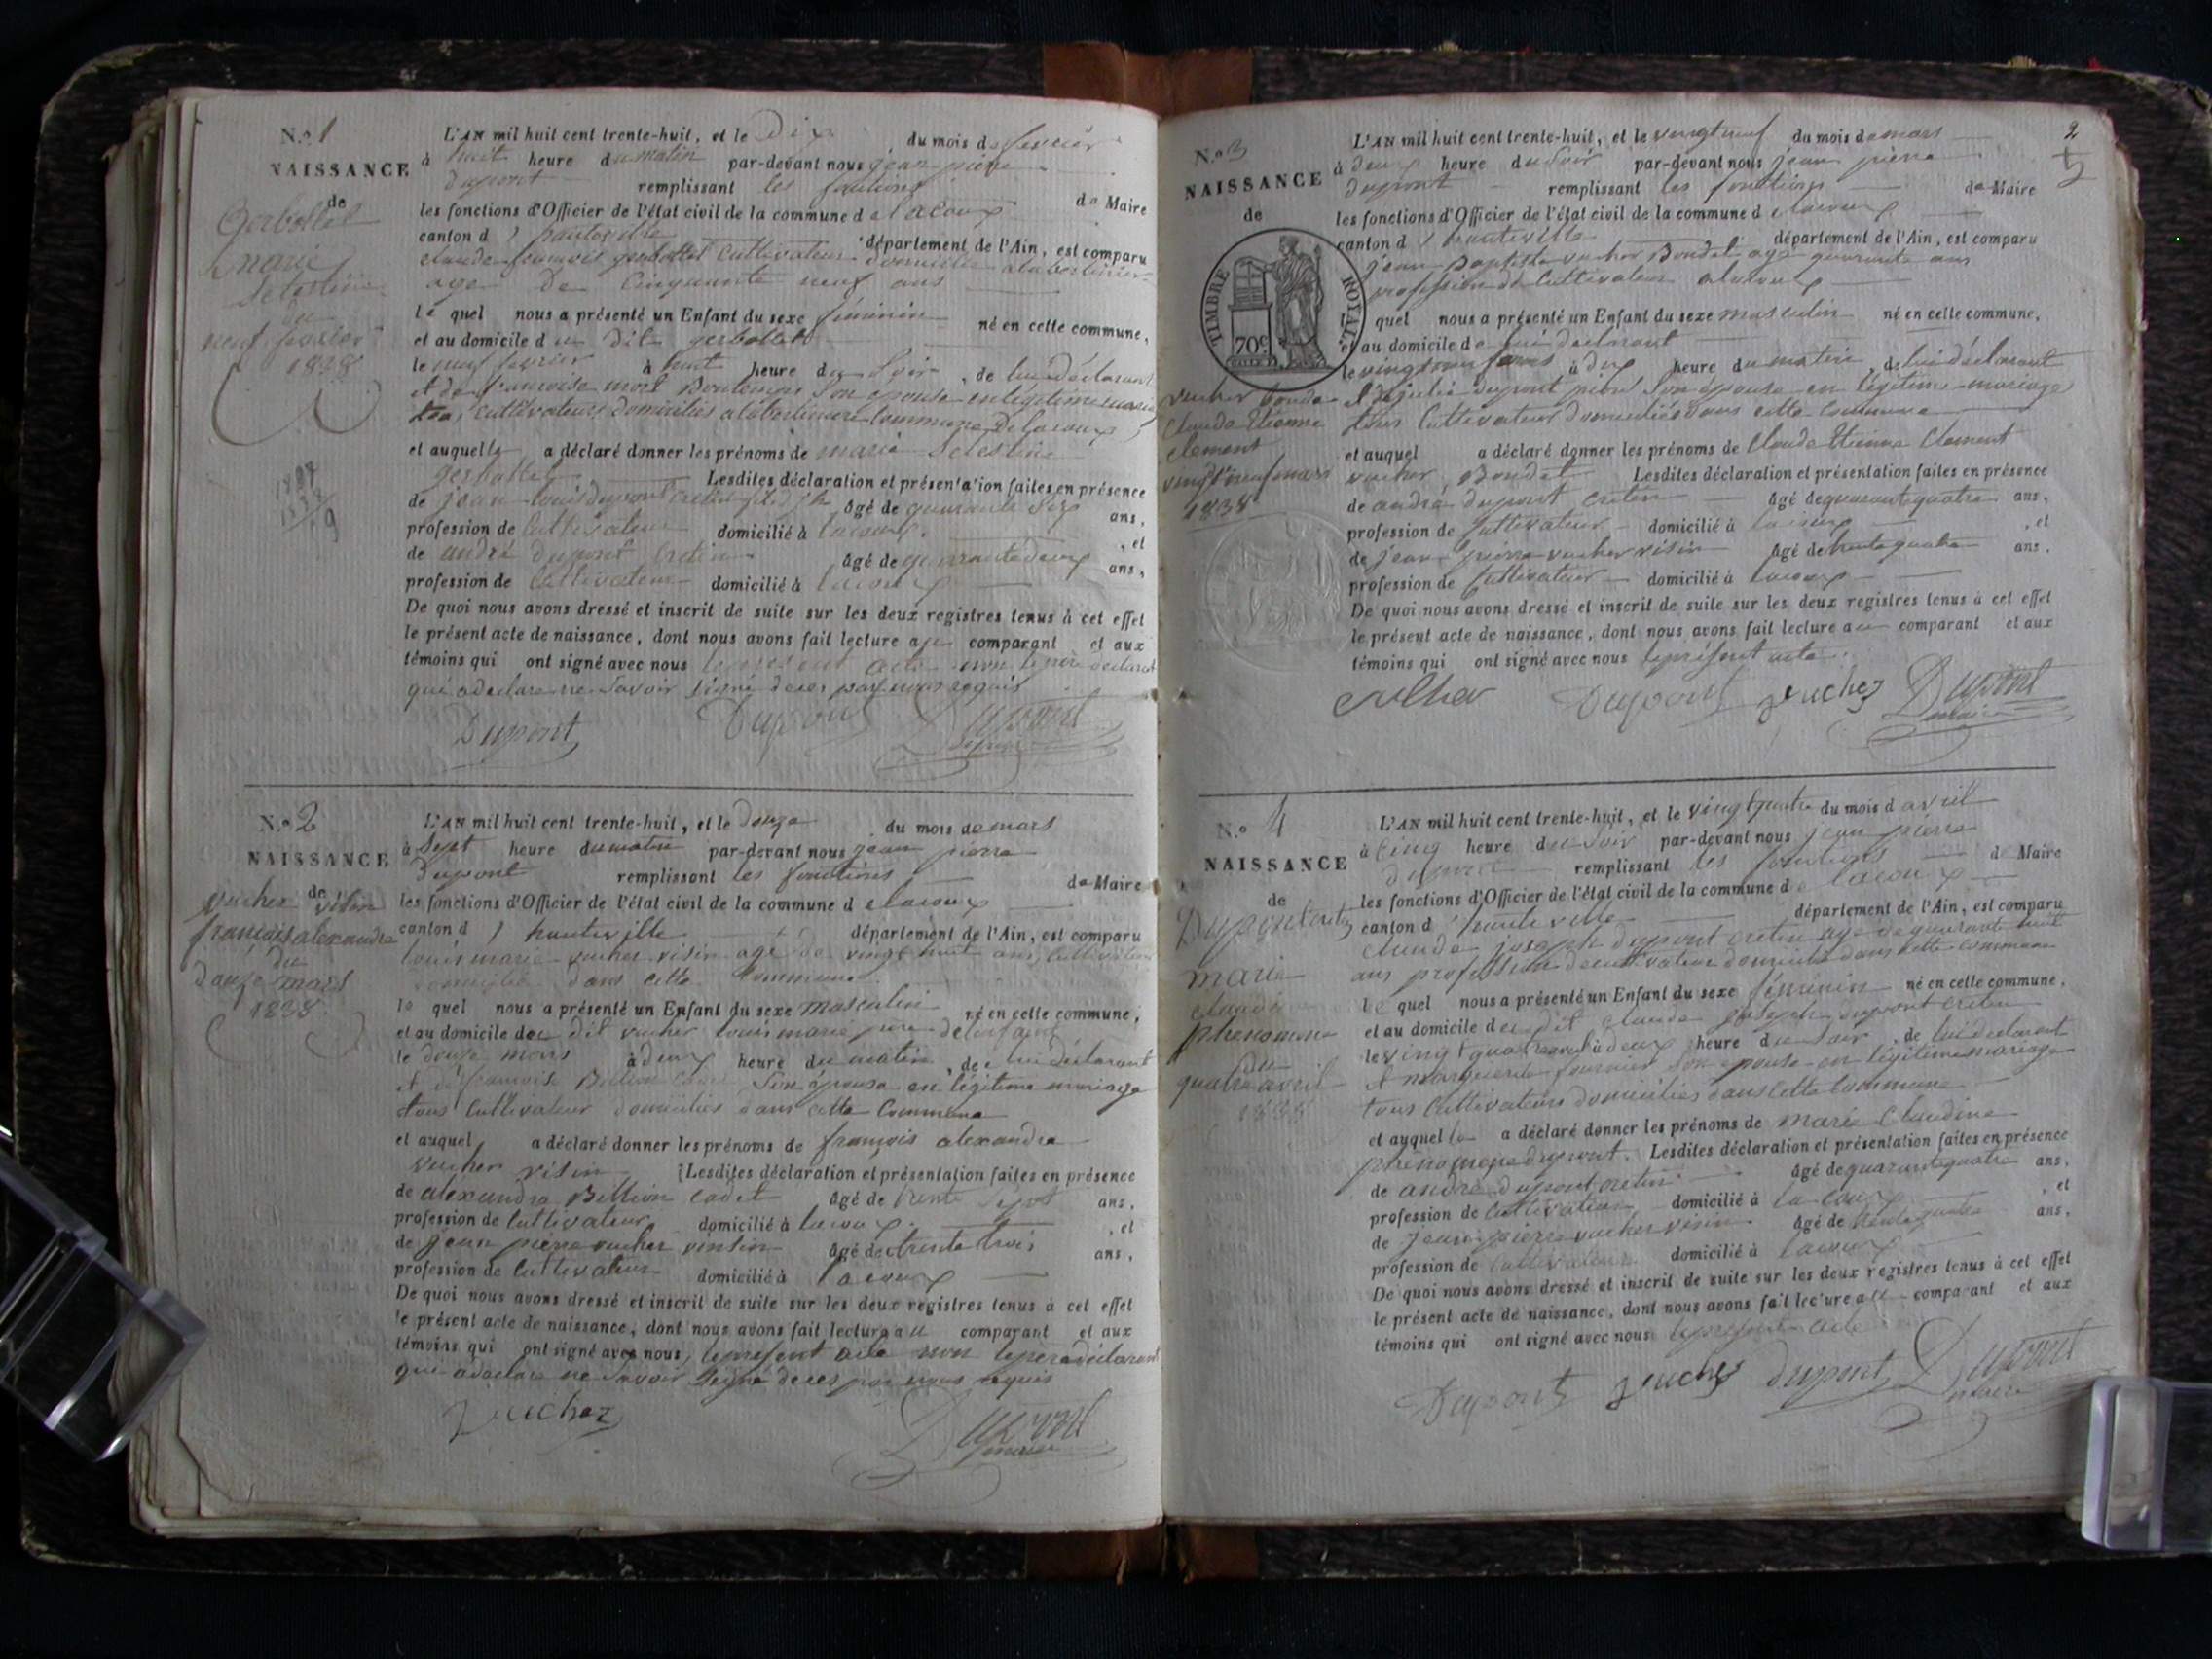 N.º 1
NAISSANCE
de
Gerbollet
marie
Selestine
du
neuf fevrier
1838
L'AN mil huit cent trente-huit, et le Dix du mois de fevrier
à huit heure du matin par-devant nous jean pierre
Dupont remplissant les fonctions de Maire
les fonctions d'Officier de l'état civil de la commune de lacoux
canton d'hauteville département de l'Ain, est comparu
claude françois gerbollet Cultivateur domicilié
age De Cinquante neuf ans
le quel nous a présenté un Enfant du sexe féminin né en cette commune,
et au domicile du dit gerbollet
le neuf fevrier à huit heure du Soir, de lui déclarant
et de françoise Son epouse en legitime mariage
Cultivateurs domiciliés commune De lacoux
et auquelle a déclaré donner les prénoms de marie Selestine
gerbollet Lesdites déclaration et présentation faites en présence
de jean louis dupont âgé de quarante Six ans,
profession de Cultivateur domicilié à lacoux, et
de andré dupont Cretin âgé de quarante deux ans,
profession de Cultivateur domicilié à lacoux
De quoi nous avons dressé et inscrit de suite sur les deux registres tenus à cet effet
le présent acte de naissance, dont nous avons fait lecture au comparant et aux
témoins qui ont signé avec nous le present acte non le père declarant
qui a declare ne Savoir Signé de ces par nous requis
Dupont Dupont Dupont
N.º 2
NAISSANCE
de
vucher visin
françois alexandre
du
douze mars
1838
L'AN mil huit cent trente-huit, et le douze du mois de mars
à Sept heure du matin par-devant nous jean pierre
Dupont remplissant les fonctions de Maire
les fonctions d'Officier de l'état civil de la commune de lacoux
canton d'hauteville département de l'Ain, est comparu
louis marie vucher visin agé de vingt huit ans, Cultivateur
domicilié dans cette Commune
le quel nous a présenté un Enfant du sexe masculin né en cette commune,
et au domicile du dit vucher louis marie père de l'enfant
le douze mars à deux heure du matin, de lui déclarant
et de françoise Billion Son épouse en légitime mariage
tous Cultivateur domiciliés dans cette Commune
et auquel a déclaré donner les prénoms de françois alexandre
vucher visin Lesdites déclaration et présentation faites en présence
de alexandre Billion Cadet âgé de trente Sept ans,
profession de Cultivateur domicilié à lacoux, et
de jean pierre vucher vinsin âgé de trente trois ans,
profession de Cultivateur domicilié à lacoux
De quoi nous avons dressé et inscrit de suite sur les deux registres tenus à cet effet
le présent acte de naissance, dont nous avons fait lecture au comparant et aux
témoins qui ont signé avec nous, le present acte non le pere déclarant
qui a declare ne Savoir Signé de ces par nous requis
vucher Dupont
maire
2
N.º 3
NAISSANCE
de
TIMBRE ROYAL
70c
vucher Bondet
Claude Etienne
Clement
vingt neuf mars
1838
L'AN mil huit cent trente-huit, et le vingt neuf du mois de mars
à deux heure du Soir par-devant nous jean pierre
Dupont remplissant les fonctions de Maire
les fonctions d'Officier de l'état civil de la commune de lacoux
canton d'hauteville département de l'Ain, est comparu
jean Baptiste vucher Bondet age quarante ans
profession de Cultivateur a lacoux
le quel nous a présenté un Enfant du sexe masculin né en cette commune,
et au domicile de lui déclarant
le vingt neuf mars à dix heure du matin, de lui déclarant
et de julie dupont Son épouse en légitime mariage
tous Cultivateur domiciliés dans cette Commune
et auquel a déclaré donner les prénoms de Claude Etienne Clement
vucher Bondet Lesdites déclaration et présentation faites en présence
de andré dupont cretin âgé de quarant quatre ans,
profession de Cultivateur domicilié à lacoux, et
de jean pierre vucher visin âgé de trente quatre ans,
profession de Cultivateur domicilié à lacoux
De quoi nous avons dressé et inscrit de suite sur les deux registres tenus à cet effet
le présent acte de naissance, dont nous avons fait lecture au comparant et aux
témoins qui ont signé avec nous le présent acte.
Dupont vucher Dupont
maire
N.º 4
NAISSANCE
de
Dupont Cretin
marie
Claudine
phenomene
du
quatre avril
1838
L'AN mil huit cent trente-huit, et le vingt quatre du mois d avril
à Cinq heure du Soir par-devant nous jean pierre
dupont remplissant les fonctions d Maire
les fonctions d'Officier de l'état civil de la commune de lacoux
canton d'hauteville département de l'Ain, est comparu
Claude joseph dupont cretin age de quarante huit
ans profession de cultivateur domicilié dans cette commune
le quel nous a présenté un Enfant du sexe féminin né en cette commune,
et au domicile du dit Claude joseph dupont Cretin
le vingt quatre avril à deux heure du Soir, de lui declarant
et marguerite fournier Son epouse en légitime mariage
tous Cultivateurs domiciliés dans cette Commune
et auquel le a déclaré donner les prénoms de marie Claudine
phenomene dupont. Lesdites déclaration et présentation faites en présence
de andré dupont cretin âgé de quarante quatre ans,
profession de Cultivateur domicilié à la coux, et
de jean pierre vucher visin âgé de trente quatre ans,
profession de Cultivateur domicilié à lacoux
De quoi nous avons dressé et inscrit de suite sur les deux registres tenus à cet effet
le présent acte de naissance, dont nous avons fait lecture au comparant et aux
témoins qui ont signé avec nous le present acte
Dupont vucher dupont Dupont
maire